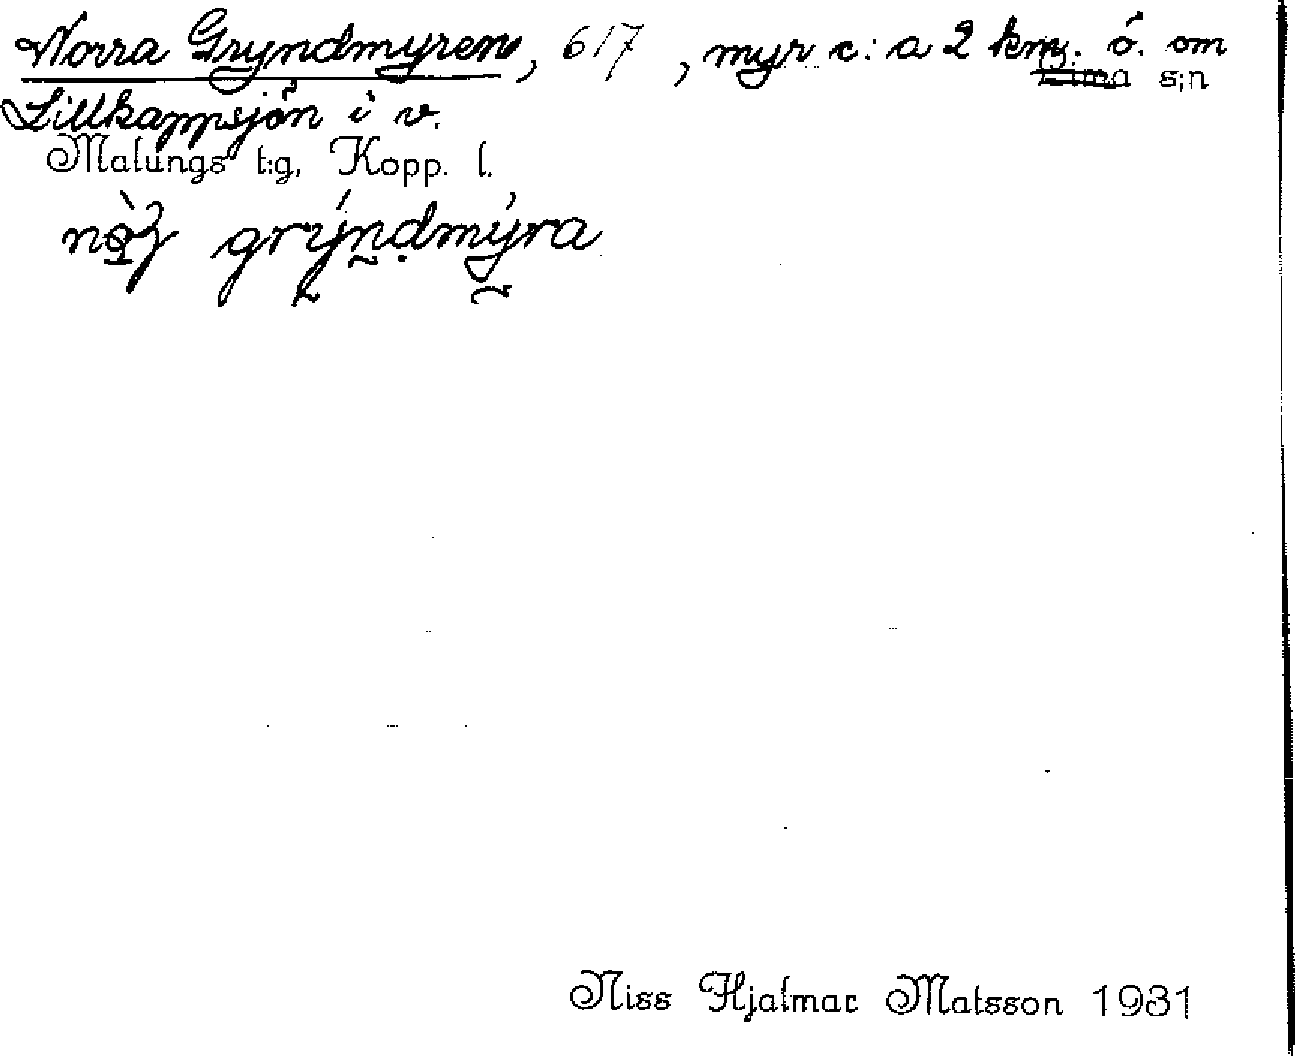 Norra Gryndmyren, 617, myr c:a 2 km. ö. om
Lima s:n
Lillkappsjön i v.
Malungs t:g, Kopp. l.
grýndmýra
Niss Hjalmar Matsson 1931